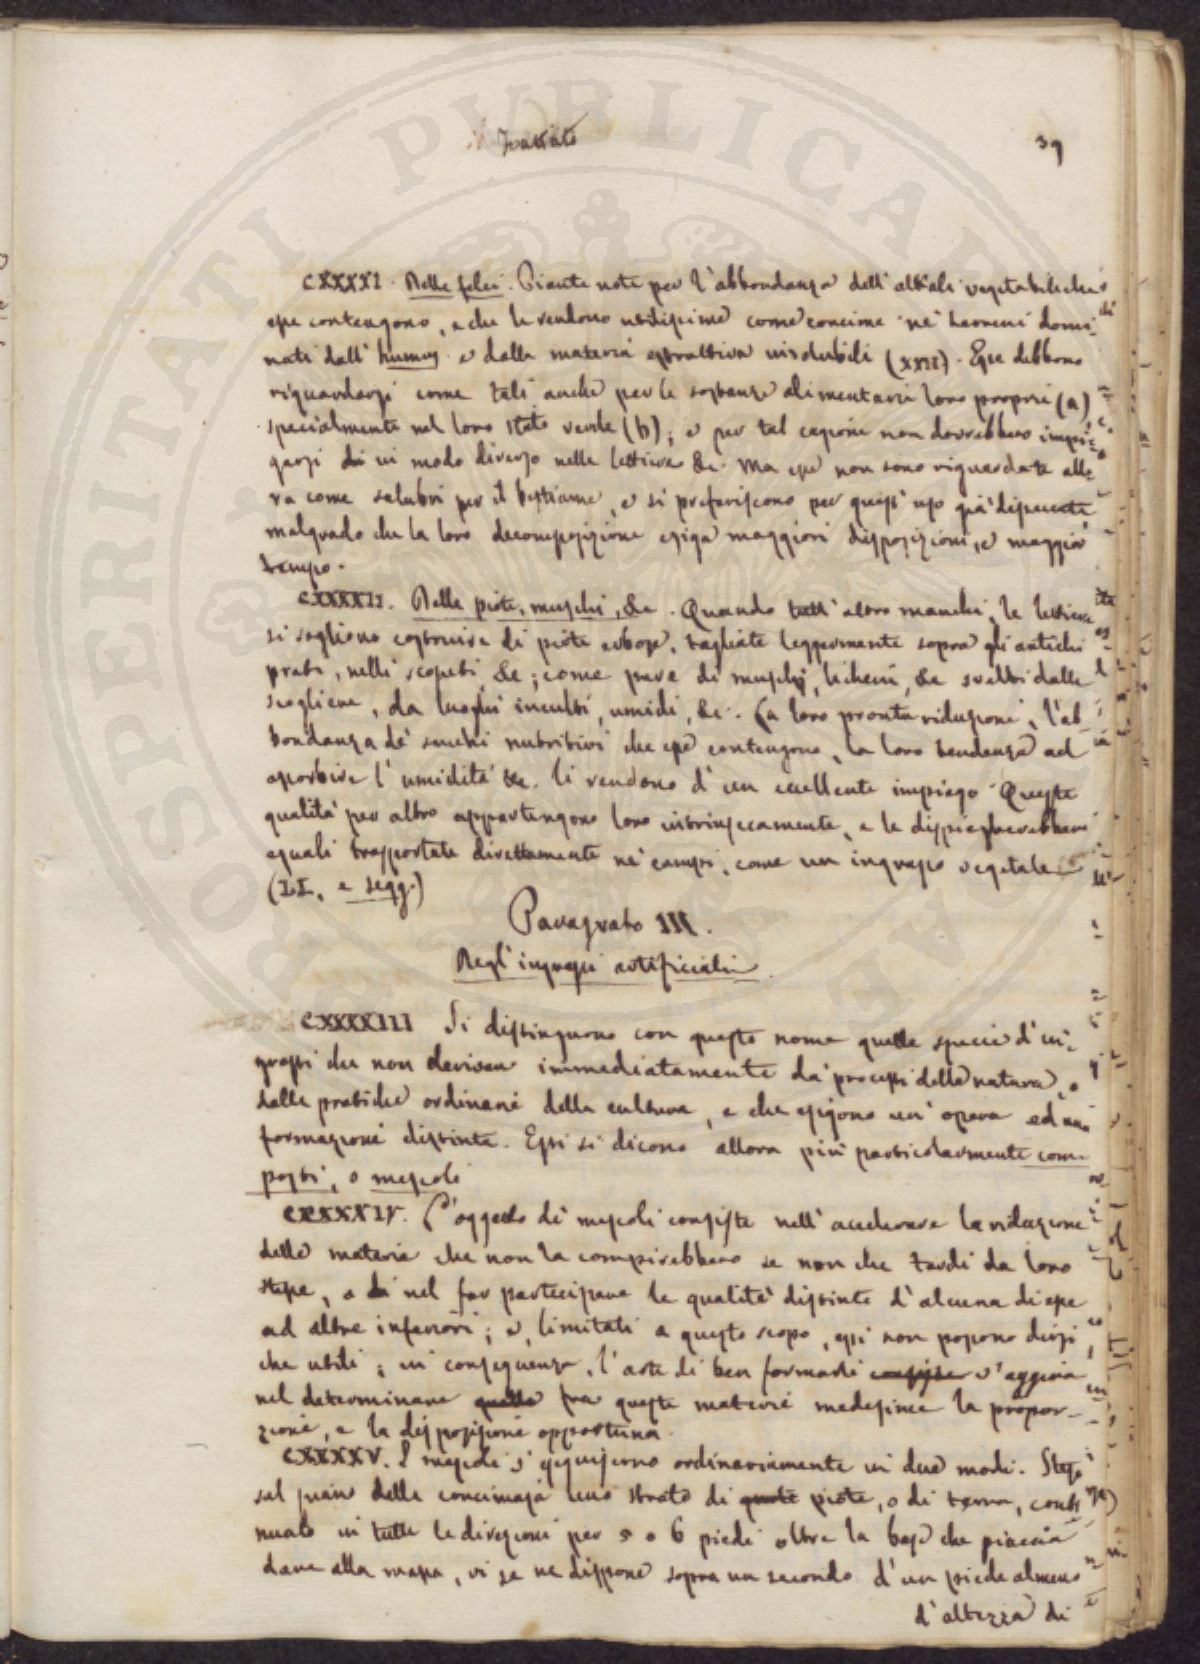 Trattato
39
CXXXXI. Delle felci. Piante note per l'abbondanza dell'alkali vegetabile che
esse contengono, e che le rendono utilissime come concime ne' terreni domi-
nati dall'humus e dalle materie estrattive insolubili (XXII). Esse debbono
riguardarsi come tali anche per le sostanze alimentari loro proprie (a),
specialmente nel loro stato verde (b); e per tal cagione non dovrebbero impie-
garsi di in modo diverso nelle lettiere &c. Ma esse non sono riguardate allo-
ra come salubri per il bestiame, e si preferiscono per quest'uso già disseccate
malgrado che la loro decomposizione esiga maggiori disposizioni, e maggior
tempo.
CXXXXII. Delle piote, muschi, &c. Quando tutt'altro manchi, le lettiere
si sogliono costruire di piote erbose, tagliate leggermente sopra gli antichi
prati, nelli scopeti, &c; come pure di muschj, licheni, &c svelti dalle
scogliere, da luoghi inculti, umidi, &c. La loro pronta riduzione, l'ab-
bondanza de' succhi nutritivi che esse contengono, la loro tendenza ad
assorbire l'umidità &c. li rendono d'un eccellente impiego. Queste
qualità per altro appartengono loro intrinsecamente, e le dispiegherebbero
eguali trasportate direttamente ne' campi, come un ingrasso vegetale
(LI, e segg.)
Paragrafo III.
Degl'ingrassi artificiali
CXXXXIII Si distinguono con questo nome quelle specie d'in-
grassi che non derivan immediatamente da' processi della natura, o
dalle pratiche ordinarie della cultura, e che esigono un'opera ed una
formazione distinta. Essi si dicono allora più particolarmente com-
posti, o mescoli
CXXXXIV. L'oggetto de' mescoli consiste nell'accelerare la riduzione
delle materie che non la compirebbero se non che tardi da loro
stesse, o di nel far partecipare le qualità distinte d'alcuna di esse
ad altre inferiori; e, limitati a questo scopo, essi non possono dirsi
che utili; in conseguenza, l'arte di ben formarli consiste s'aggira
nel determinare quelle fra queste materie medesime la propor-
zione, e la disposizione opportuna.
CXXXXV. I mescoli s'eseguiscono ordinariamente in due modi. Steso
sul piano della concimaja uno strato di quote piote, o di terra, conti-
nuato in tutte le direzioni per 5 o 6 piedi oltre la base che piaccia
dare alla massa, vi se ne dispone sopra un secondo d'un piede almeno
d'altezza di